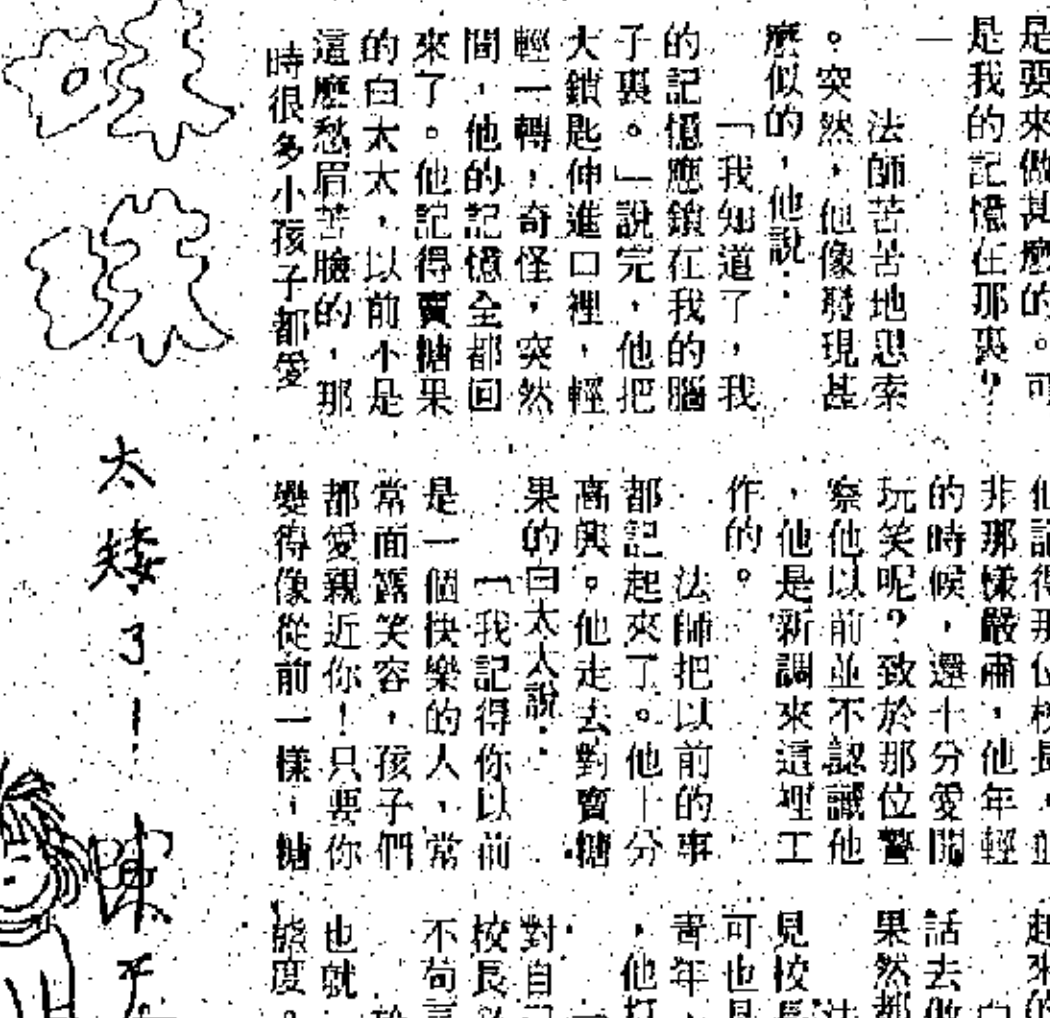 是要來做甚麼的。可
是我的記憶在那裏?
—
法師苦苦地思索
。突然,他像發現甚
麼似的,他說:
「我知道了,我
的記憶應鎖在我的腦
子裏。」說完,他把
大鎖匙伸進口裡,輕
輕一轉,奇怪,突然
間,他的記憶全都回
來了。他記得賣糖果
的白太太,以前不是
這麼愁眉苦臉的,那
時很多小孩子都愛
他記得那位校長,並
非那樣嚴肅,他年輕
的時候,還十分愛開
玩笑呢?致於那位警
察他以前並不認識他
,他是新調來這裡工
作的。
法師把以前的事
都記起來了。他十分
高興。他走去對賣糖
果的白太太說:
「我記得你以前
是一個快樂的人,常
常面露笑容,孩子們
都愛親近你!只要你
變得像從前一樣,糖
起來的
話去做
果然都
見校長
可也是
青年、
,他打
對自己
校長
不苟言
也就
態度
妹妹
太矮了!
陳